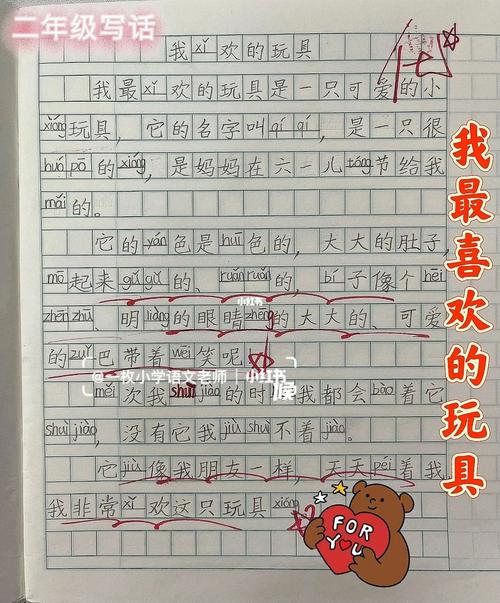 二年级写话
我xǐ欢的玩具
我最xǐ欢的玩具是一只可爱的小
xióng玩具，它的名字叫qí qí，是一只很
huó pō的xióng，是妈妈在六一儿tóng节给我
mǎi的。
它的yán色是huī色的，大大的肚子，
mō起来gǔ gǔ的、ruǎn ruǎn的，bí子像个hēi
zhēn zhū、明liàng的眼睛zhēng的大大的、可爱
的zuǐ巴带着wēi笑呢！
měi次我shuì jiào的时候我都会bào着它
shuì jiào，没有它我jiù shuì不着。
它jiù像我朋友一样，天天péi着我
我非常xǐ欢这只玩具xióng
我最喜欢的玩具
小红书
@一枚小学语文老师 | 小红书
FOR YOU